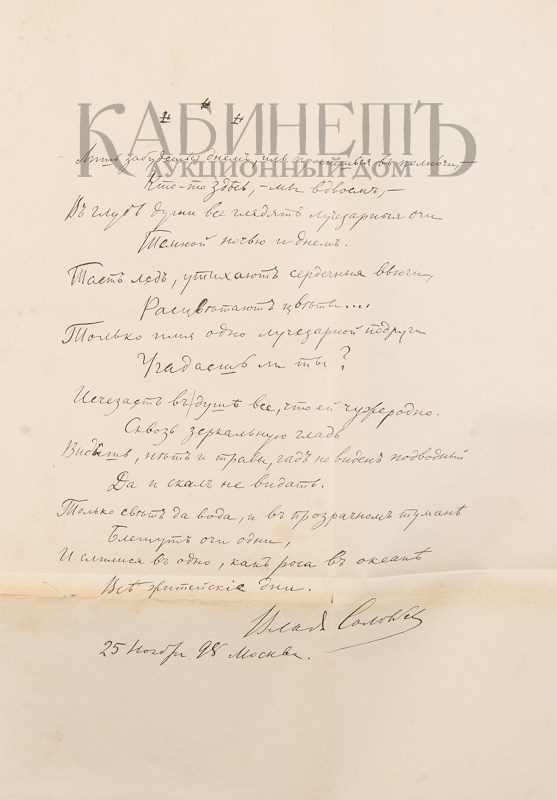 * * *
КАБИНЕТЪ
АУКЦИОННЫЙ ДОМ
Лишь забудешься днемъ, иль проснешься въ полночи, –
Кто-то здѣсь, – мы вдвоемъ, –
Въ глубь души все глядятъ лучезарныя очи
Темной ночью и днемъ.
Таетъ ледъ, утихаютъ сердечныя вьюги,
Расцвѣтаютъ цвѣты...
Только имя одно лучезарной подруги
Угадаешь ли ты?
Исчезаетъ въ душѣ все, что ей чужеродно.
Сквозь зеркальную гладь
Видишь, нѣтъ и травы, гадъ не виденъ подводный
Да и скалъ не видать.
Только свѣтъ да вода, и въ прозрачномъ туманѣ
Блещутъ очи одни,
И слилися въ одно, какъ роса въ океанѣ
Всѣ житейскіе дни.
Влад Соловьев
25 Ноября 98 Москва.